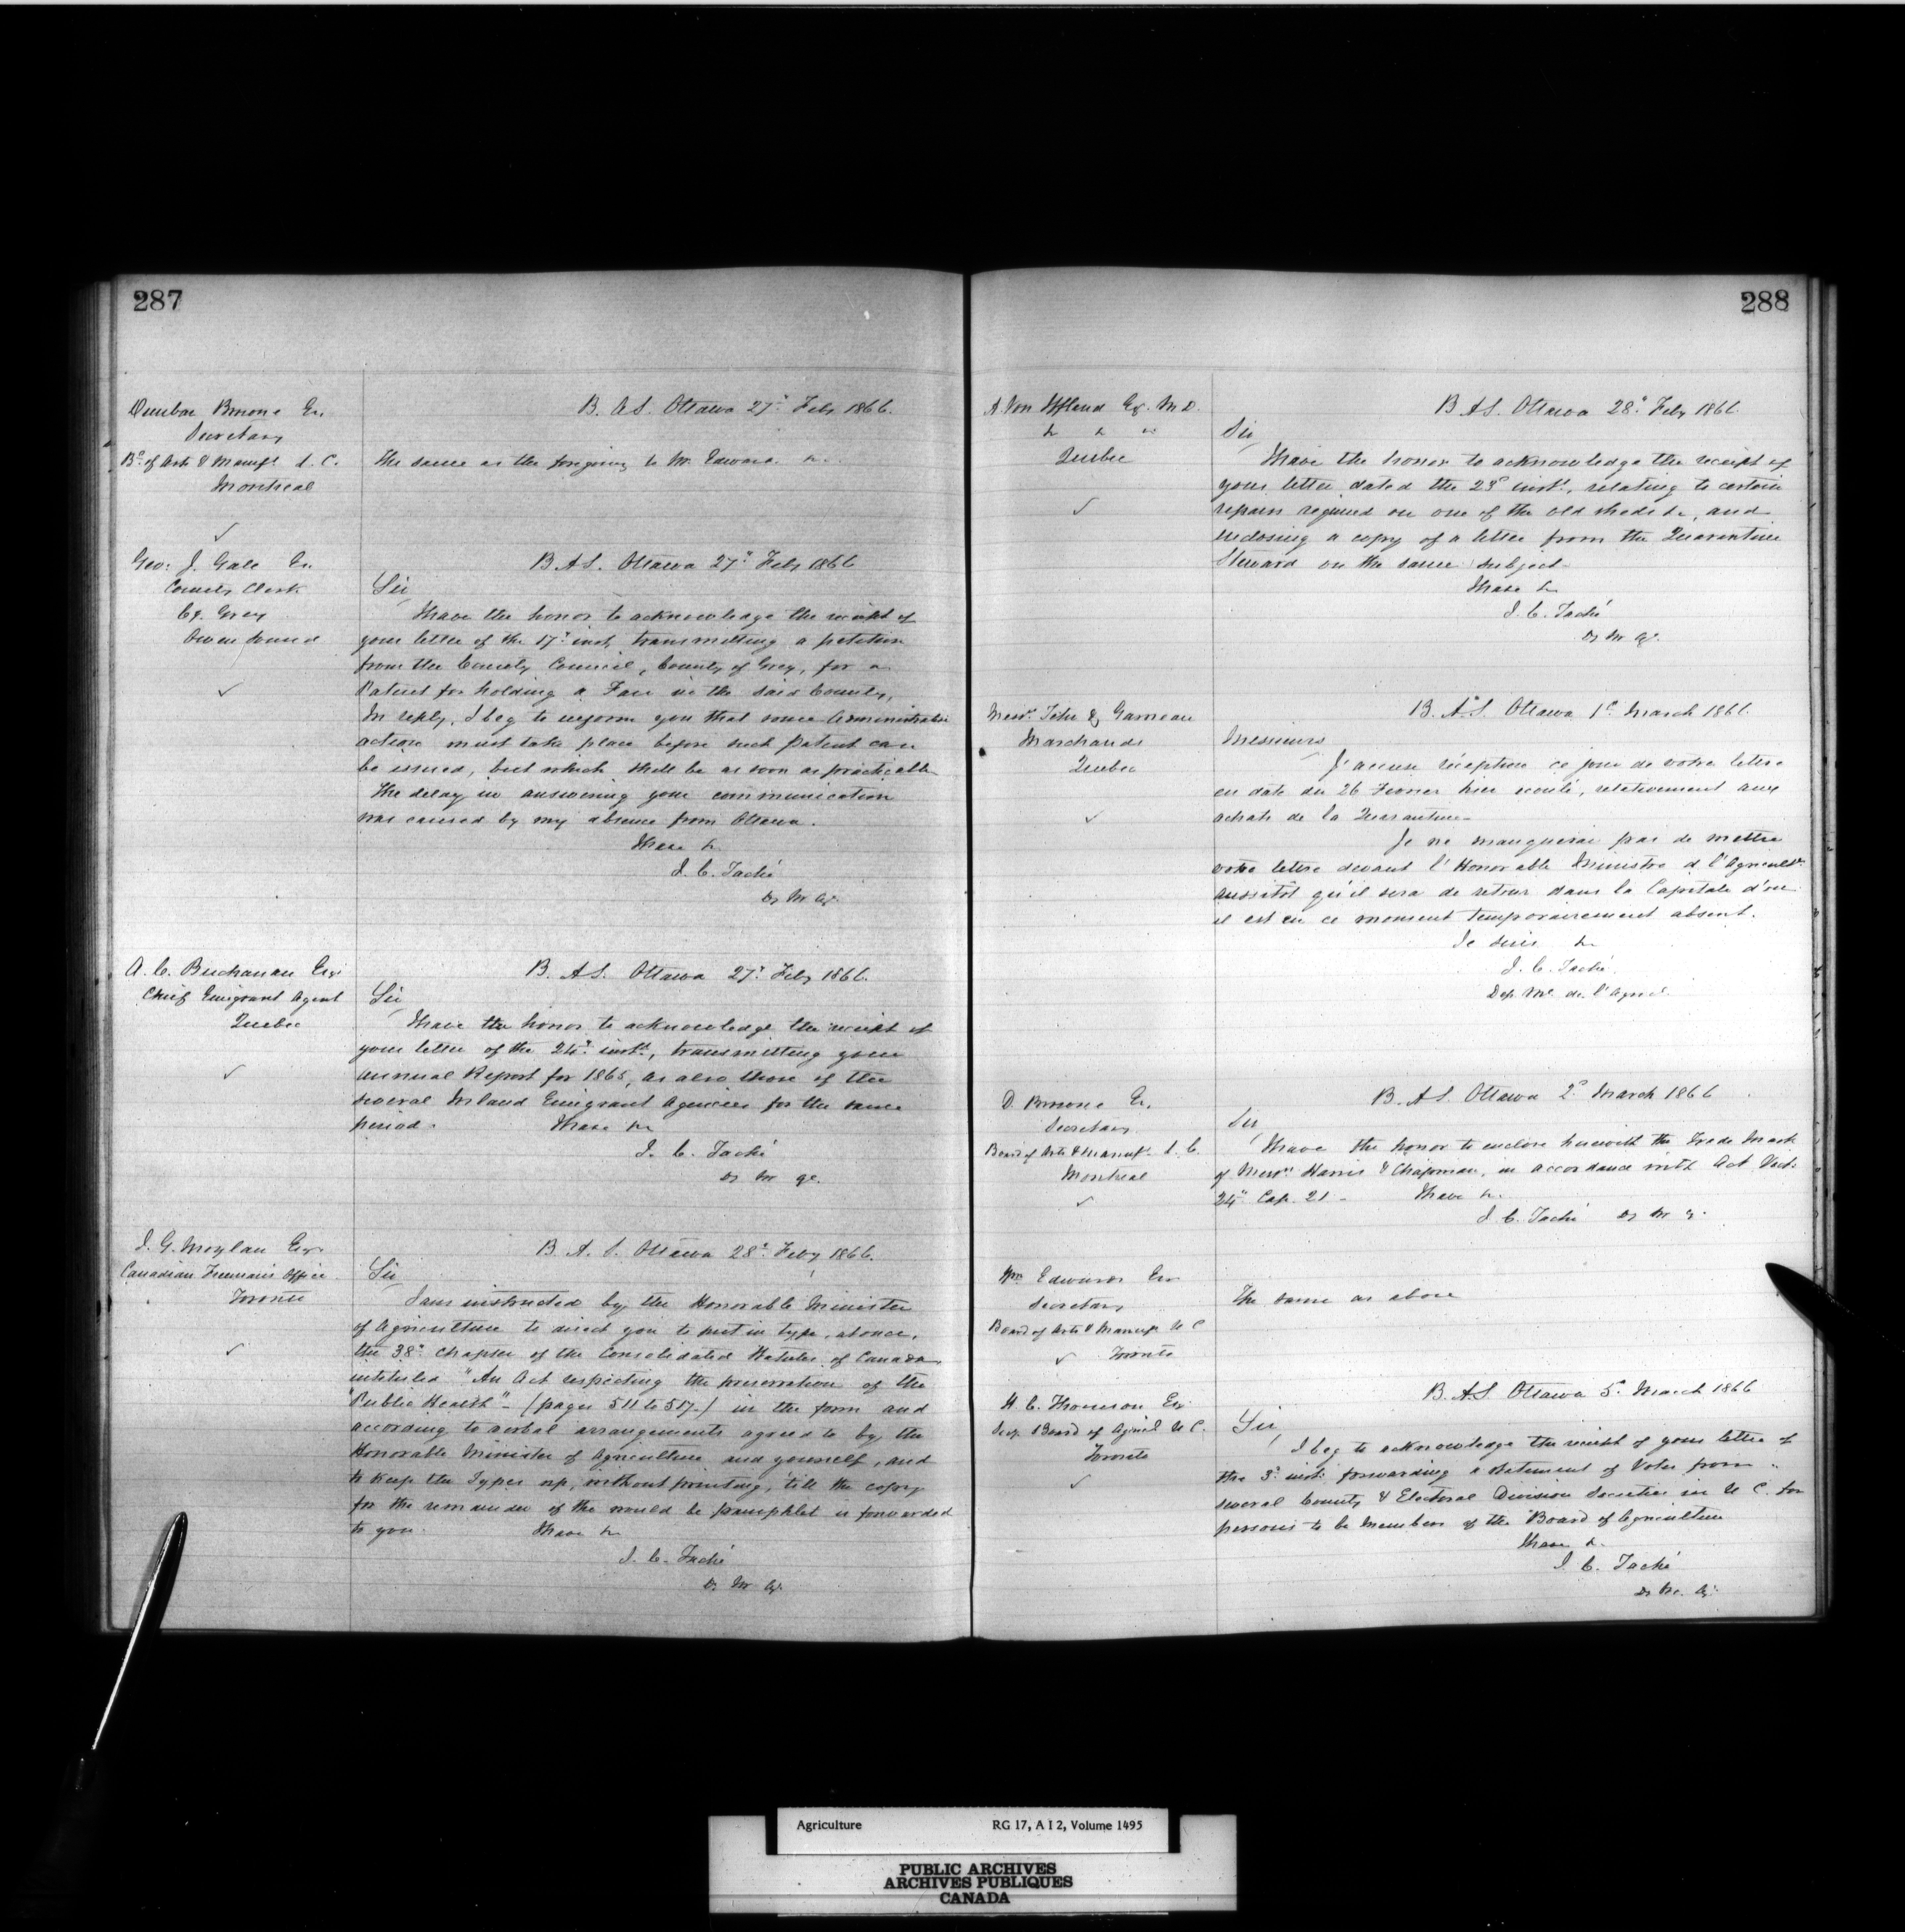 287
Dunbar Browne Esr.
Secretary
Bd. of Arts & Manufs. L. C.
Montreal
B. A S. Ottawa 27th Feby 1866.
The same as the foregoing to Mr. Edwards &c.
Geo: J. Gale Esr.
County Clerk
Co. Grey
Owen Sound
B. A S. Ottawa 27th Feby 1866
Sir
I have the honor to acknowledge the receipt of
your letter of the 17th inst, transmitting a petition
from the County Council, County of Grey, for a
Patent for holding a Fair in the said County,
In reply, I beg to inform you that some Administrative
action must take place before such Patent can
be issued, but which shall be as soon as practicable
The delay in answering your communication
was caused by my absence from Ottawa.
I have &c
J. C. Taché
Dy M. Ag.
A. C. Buchanan Esqr
Chief Emigrant Agent
Quebec
B. A S. Ottawa 27th Feby 1866.
Sir
I have the honor to acknowledge the receipt of
your letter of the 24th instt, transmitting your
annual Report for 1865, as also those of the
several Inland Emigrant Agencies for the same
period. I have &c
J. C. Taché
Dy M Ag.
J. G. Moylan Esqr
Canadian Freeman's Office
Toronto
B. A. S. Ottawa 28th Feby 1866.
Sir
I am instructed by the Honorable Minister
of Agriculture to direct you to put in type, at once,
the 38th Chapter of the Consolidated Statutes of Canada
intituled "An Act respecting the preservation of the
"Public Health" - (pages 511 to 517 -) in the form and
according to verbal arrangements agreed to by the
Honorable Minister of Agriculture and yourself, and
to keep the Types up, without printing, till the copy
for the remainder of the would be pamphlet is forwarded
to you. I have &c
J. C. Taché
Dy M Ag.
288
A. Von Iffland Esq. M.D.
&c &c &c
Quebec
B A S. Ottawa 28th Feby 1866.
Sir
I have the honor to acknowledge the receipt of
your letter dated the 23d instt, relating to certain
repairs required on one of the old sheds &c, and
enclosing a copy of a letter from the Quarantine
Steward on the same subject.
I have &c
J. C. Taché
Dy M Ag.
Messrs. Têtu & Garneau
Marchands
Quebec
B. A S. Ottawa 1er March 1866.
Messieurs
J'accuse réception ce jour de votre lettre
en date du 26 Fevrier, relativement aux
achats de la Quarantine
Je ne manquerai pas de mettre
votre lettre devant l'Honorable Ministre d l'Agricult.
aussitôt qu'il sera de retour dans la Capitale d'où
il est en ce moment temporairement absent.
Je suis &c
J. C. Taché.
Dep. Me. de l'Agric.
D. Browne Er.
Secretary
Board of Arts & Manufs. L. C.
Montreal
B. A S. Ottawa 2d March 1866
Sir
I have the honor to enclose herewith the Trade Mark
of Messrs Harris & Chapman, in accordance with Act Vict:
24th Cap. 21 - I have &c.
J. C. Taché Dy M Ag.
Wm Edwards Esr
Secretary
Board of Arts & Manufs U C
Toronto
The same as above
H. C. Thomson Esq
Secy. Board of Agricl U C.
Toronto
B. A.S. Ottawa 5th March 1866
Sir,
I beg to acknowledge the receipt of your letter of
the 3d inst: forwarding a statement of Votes from
several County & Electoral Division Societies in U C. for
persons to be Members of the Board of Agriculture
I have &c.
J. C. Taché
Dy M. Ag.
Agriculture RG 17, A I 2, Volume 1495
PUBLIC ARCHIVES
ARCHIVES PUBLIQUES
CANADA